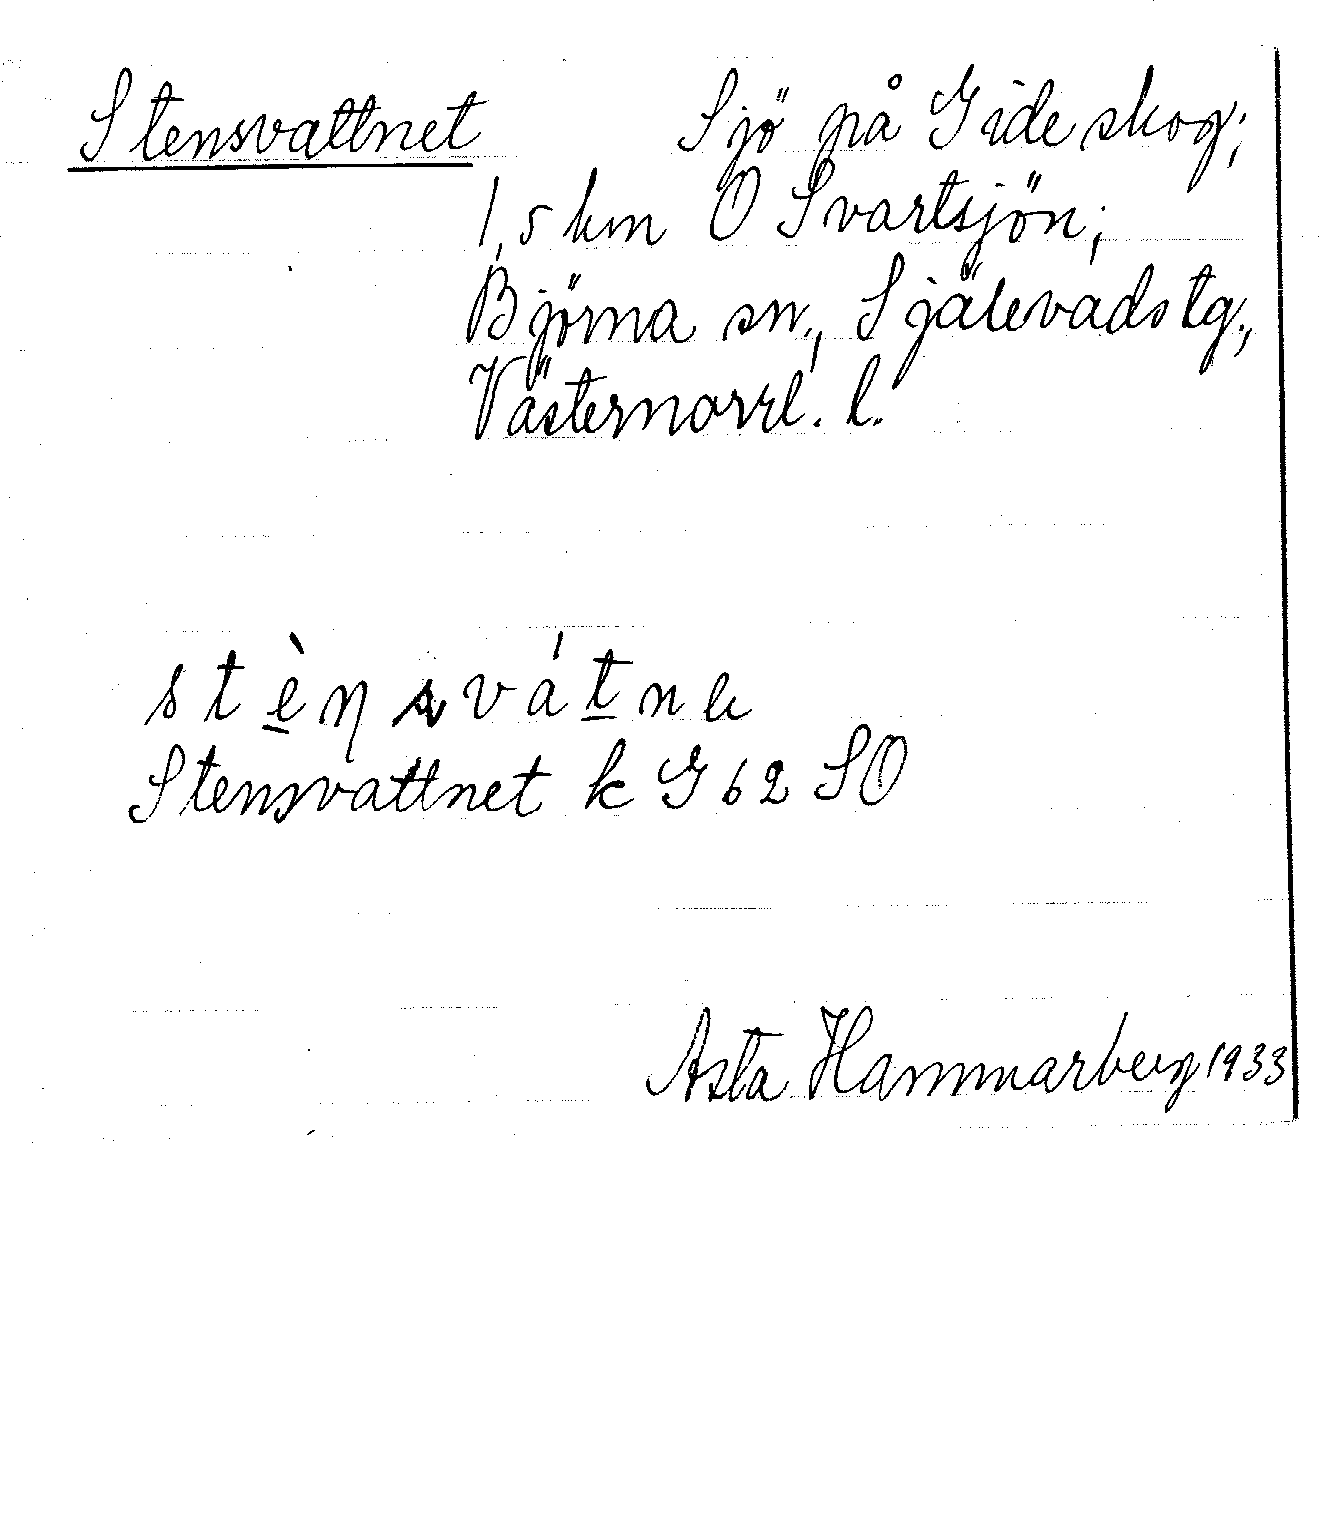 Stensvattnet Sjö på Gideskog;
1,5 km O Svartsjön;
Björna sn., Själevads tg.,
Västernorrl. l.
stèn̩svát̲ne
Stensvattnet k G 62 SO
Asta Hammarberg 1933